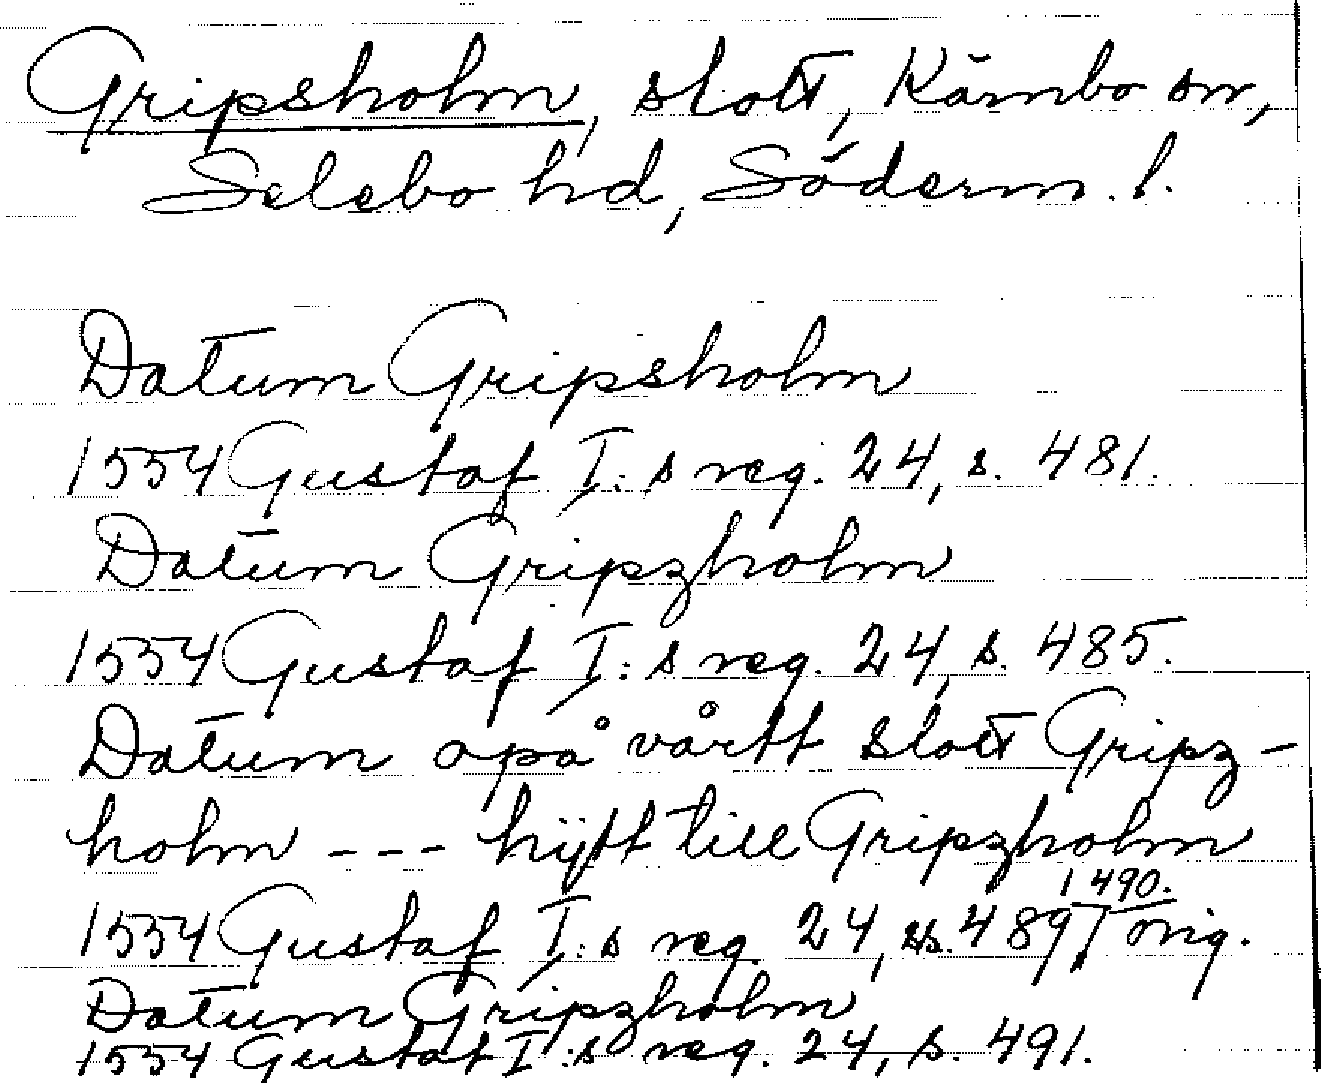 Gripsholm, slott, Kärnbo sn,
Selebo hd, Söderm. l.
Datum Gripsholm
1554 Gustaf I:s reg. 24, s. 481.
Datum Gripzholm
1554 Gustaf I:s reg. 24, s. 485.
Datum opå vårtt slott Gripz-
holm --- hijtt till Gripzholm
1554 Gustaf I:s reg. 24, ss. 489, 490. orig.
Datum Gripzholm
1554 Gustaf I:s reg. 24, s. 491.